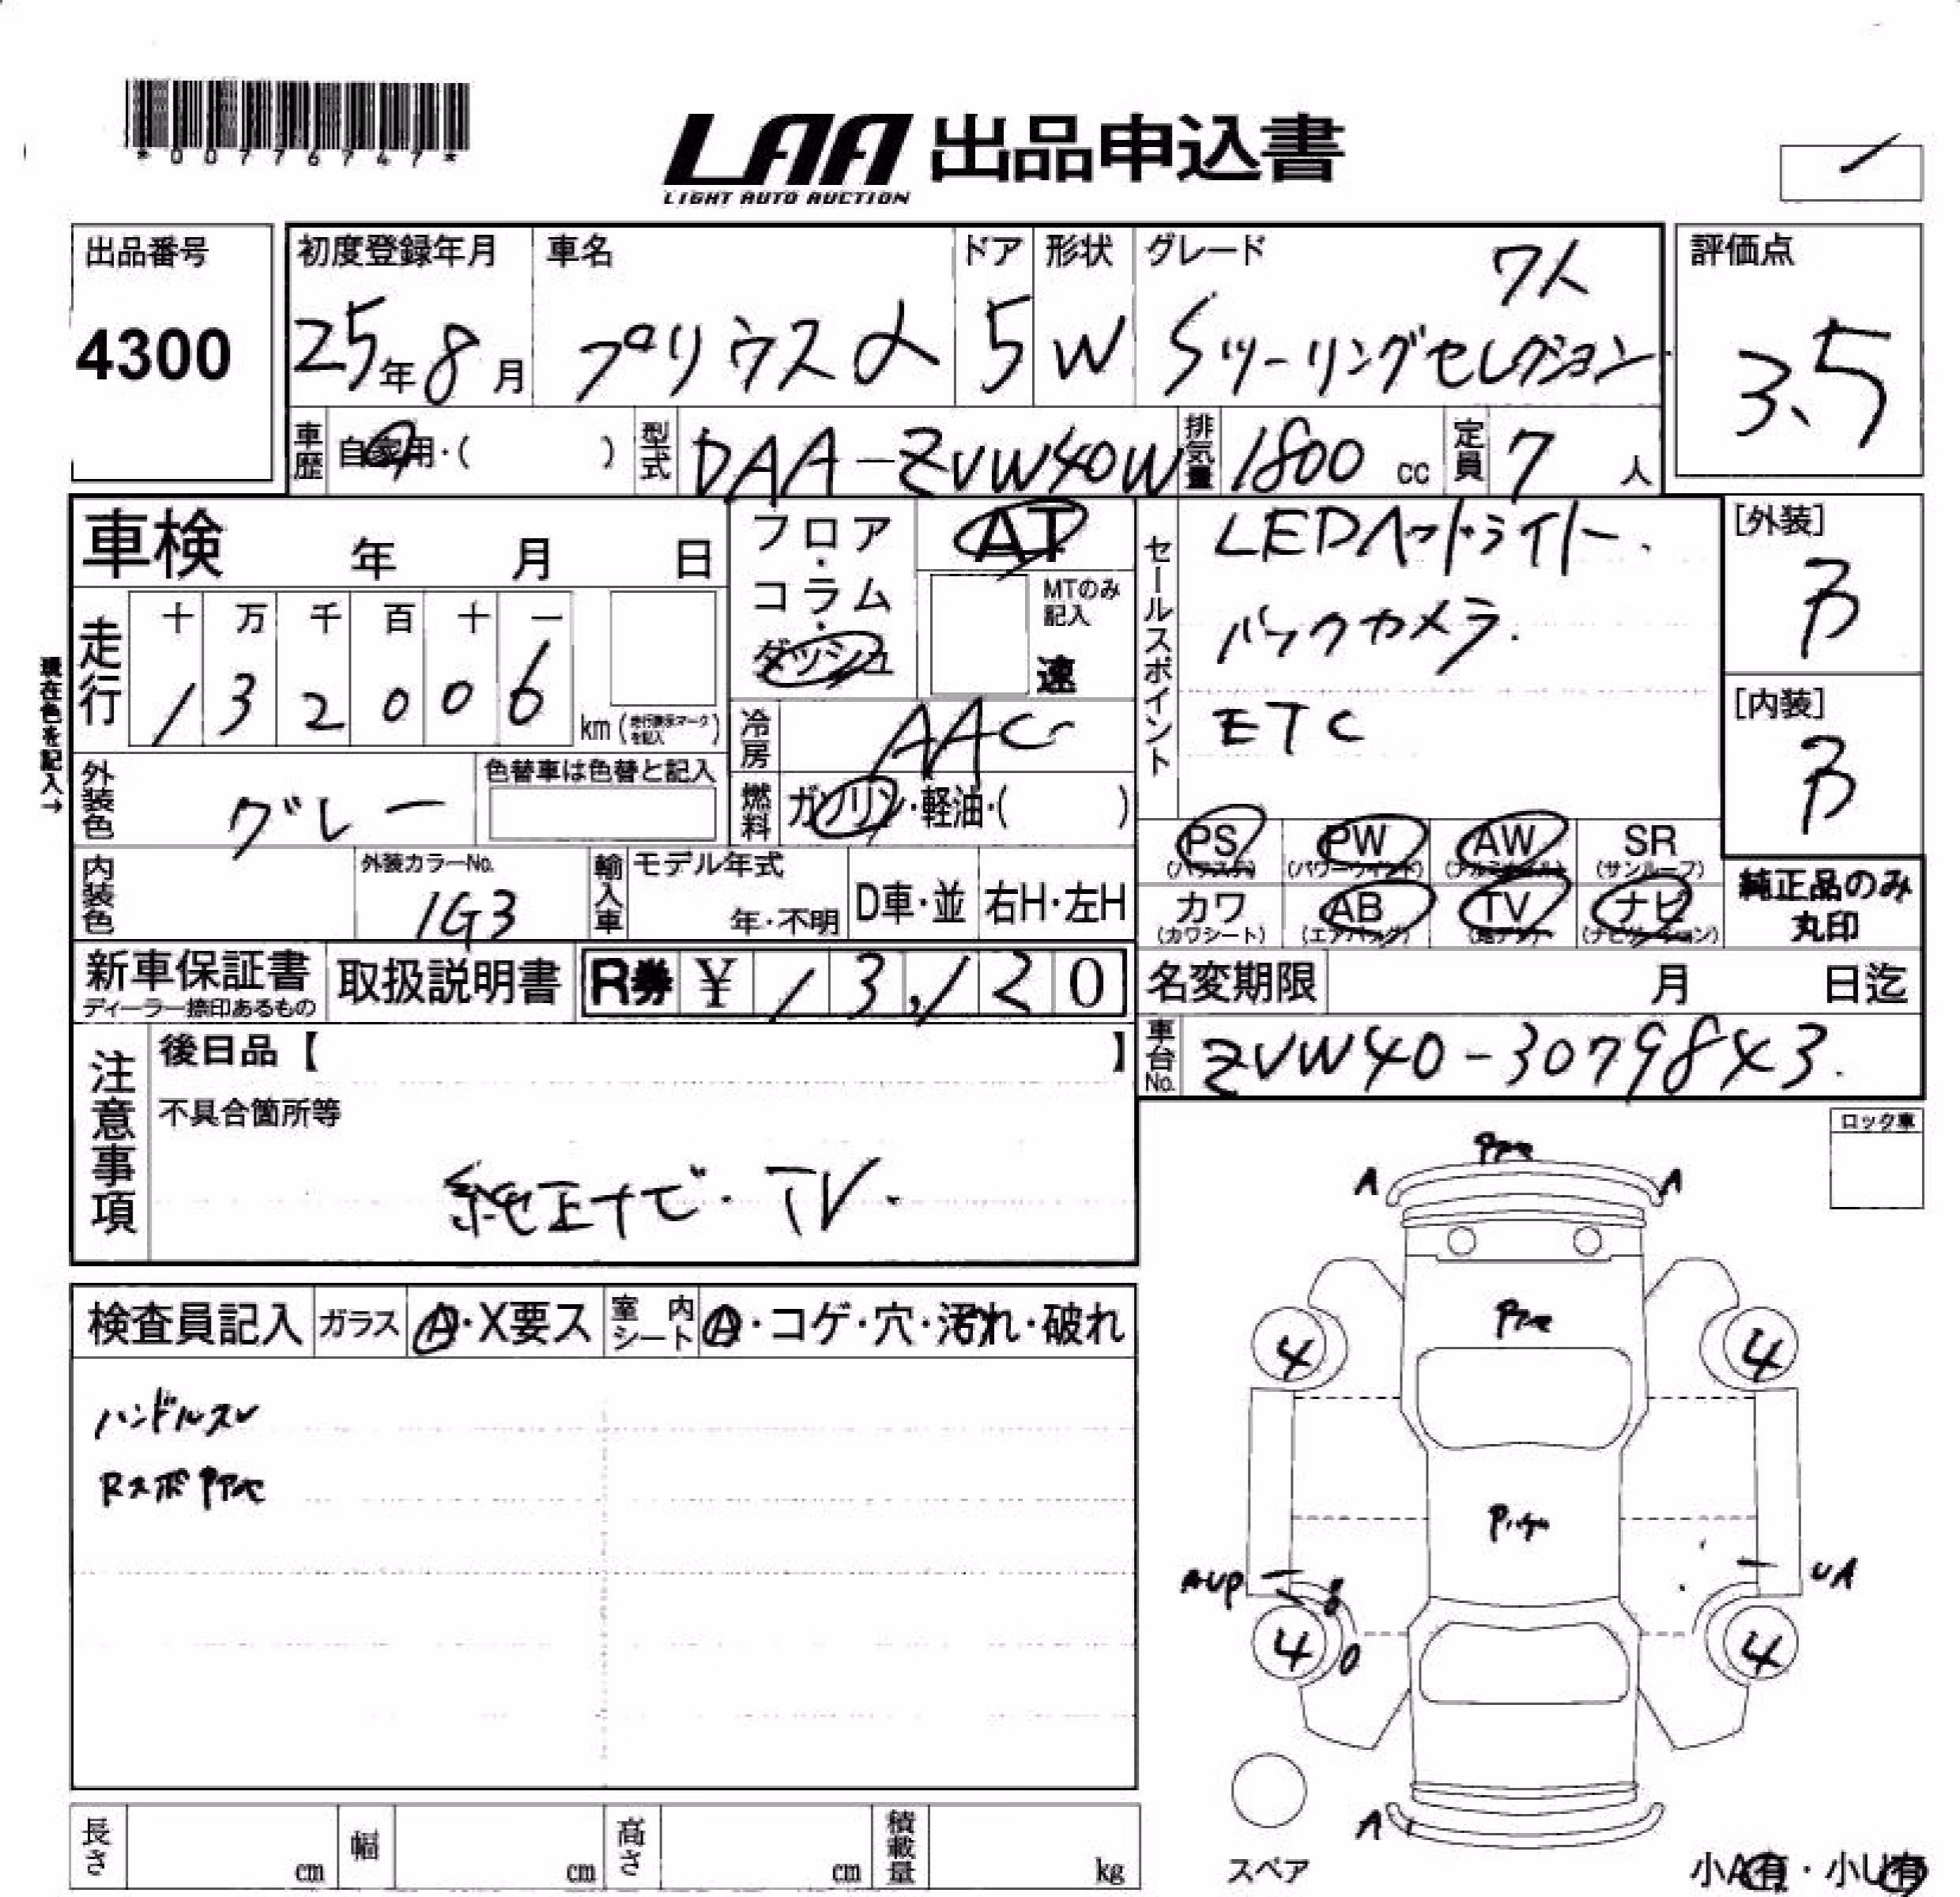 *00776747*
LAA 出品申込書
LIGHT AUTO AUCTION
出品番号
4300
初度登録年月
25年8月
車名
プリウスα
ドア
5
形状
W
グレード
7人
Sツーリングセレクション
評価点
3.5
車歴
自家用・( )
型式
DAA-ZVW40W
排気量
1800 cc
定員
7 人
車検 年 月 日
フロア・コラム・ダッシュ
AT
MTのみ記入
速
セールスポイント
LEDヘッドライト.
バックカメラ.
ETC
[外装]
B
[内装]
B
現在色を記入→
走行
十 万 千 百 十 一
1 3 2 0 0 6
km (走行表示マークを記入)
冷房
AAC
燃料
ガソリン・軽油・( )
外装色
グレー
色替車は色替と記入
内装色
外装カラーNo.
1G3
輸入車
モデル年式
年・不明
D車・並
右H・左H
PS (パワステ)
PW (パワーウインド)
AW (アルミホイル)
SR (サンルーフ)
カワ (カワシート)
AB (エアバッグ)
TV (地デジ)
ナビ (ナビゲーション)
純正品のみ
丸印
新車保証書
ディーラー捺印あるもの
取扱説明書
R券 ¥ 13,120
名変期限 月 日迄
車台No.
ZVW40-3079843.
注意事項
後日品【 】
不具合箇所等
純正ナビ・TV.
ロック車
検査員記入
ガラス
A・X要ス
室内シート
A・コゲ・穴・汚れ・破れ
ハンドルスレ
A A
4 4
AUP UA
4 4
A
スペア
小A有・小U有
長さ cm
幅 cm
高さ cm
積載量 kg